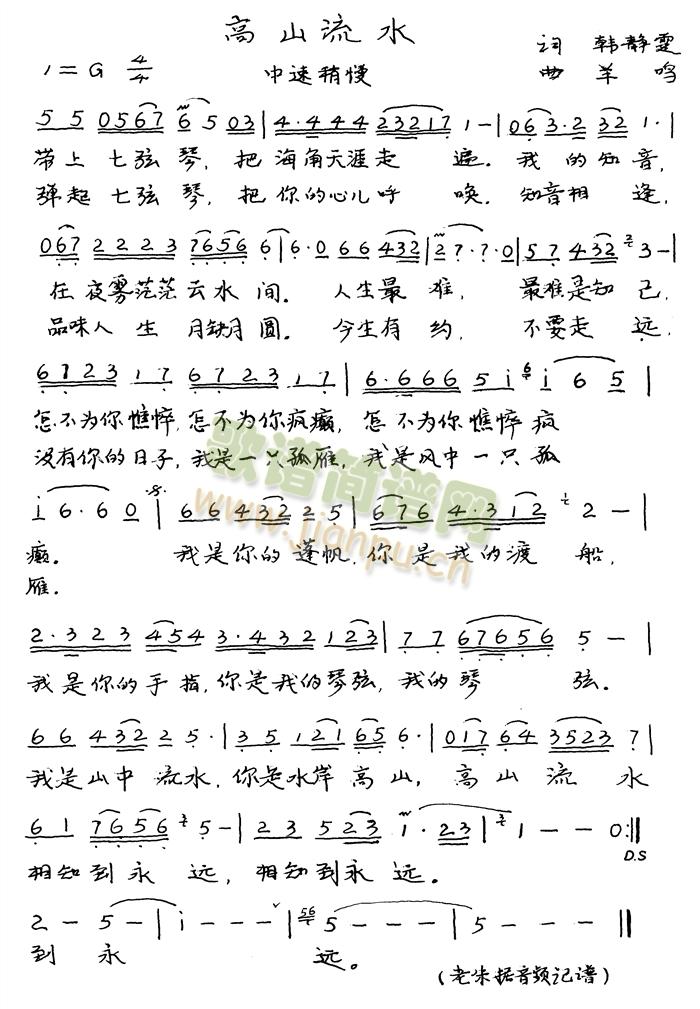 高山流水
词 韩静霆
1=G 4/4 中速稍慢 曲 羊鸣
5 5 0567 6 5 03 | 4·444 232171 1 - | 063·2 32 1· |
带上七弦琴，把海角天涯走遍。我的知音，
弹起七弦琴，把你的心儿呼唤。知音相逢，
067 2223 7656 6 | 6·0 66 432 | 2 7·7·0 | 57 432 3 - |
在夜雾茫茫云水间。人生最难，最难是知己，
品味人生月缺月圆。今生有约，不要走远，
6723 17 6723 17 | 6·666 5 i i 6 5 |
怎不为你憔悴，怎不为你疯癫，怎不为你憔悴疯
没有你的日子，我是一只孤雁，我是风中一只孤
i 6·6 0 | 66 432 2 5 | 676 4·312 2 - |
癫。我是你的篷帆，你是我的渡船，
雁。
2·323 454 3·432 123 | 77 67656 5 - |
我是你的手指，你是我的琴弦，我的琴弦。
66 432 2 5· | 35 121 65 6· | 017 64 3523 7 |
我是山中流水，你是水岸高山，高山流水
61 7656 5 - | 23 523 1·23 | 1 - - 0 :||
D.S
相知到永远，相知到永远。
2 - 5 - | i - - - | 56 5 - - - | 5 - - - ||
到永远。
(老朱据音频记谱)
歌谱简谱网
www.jianpu.cn